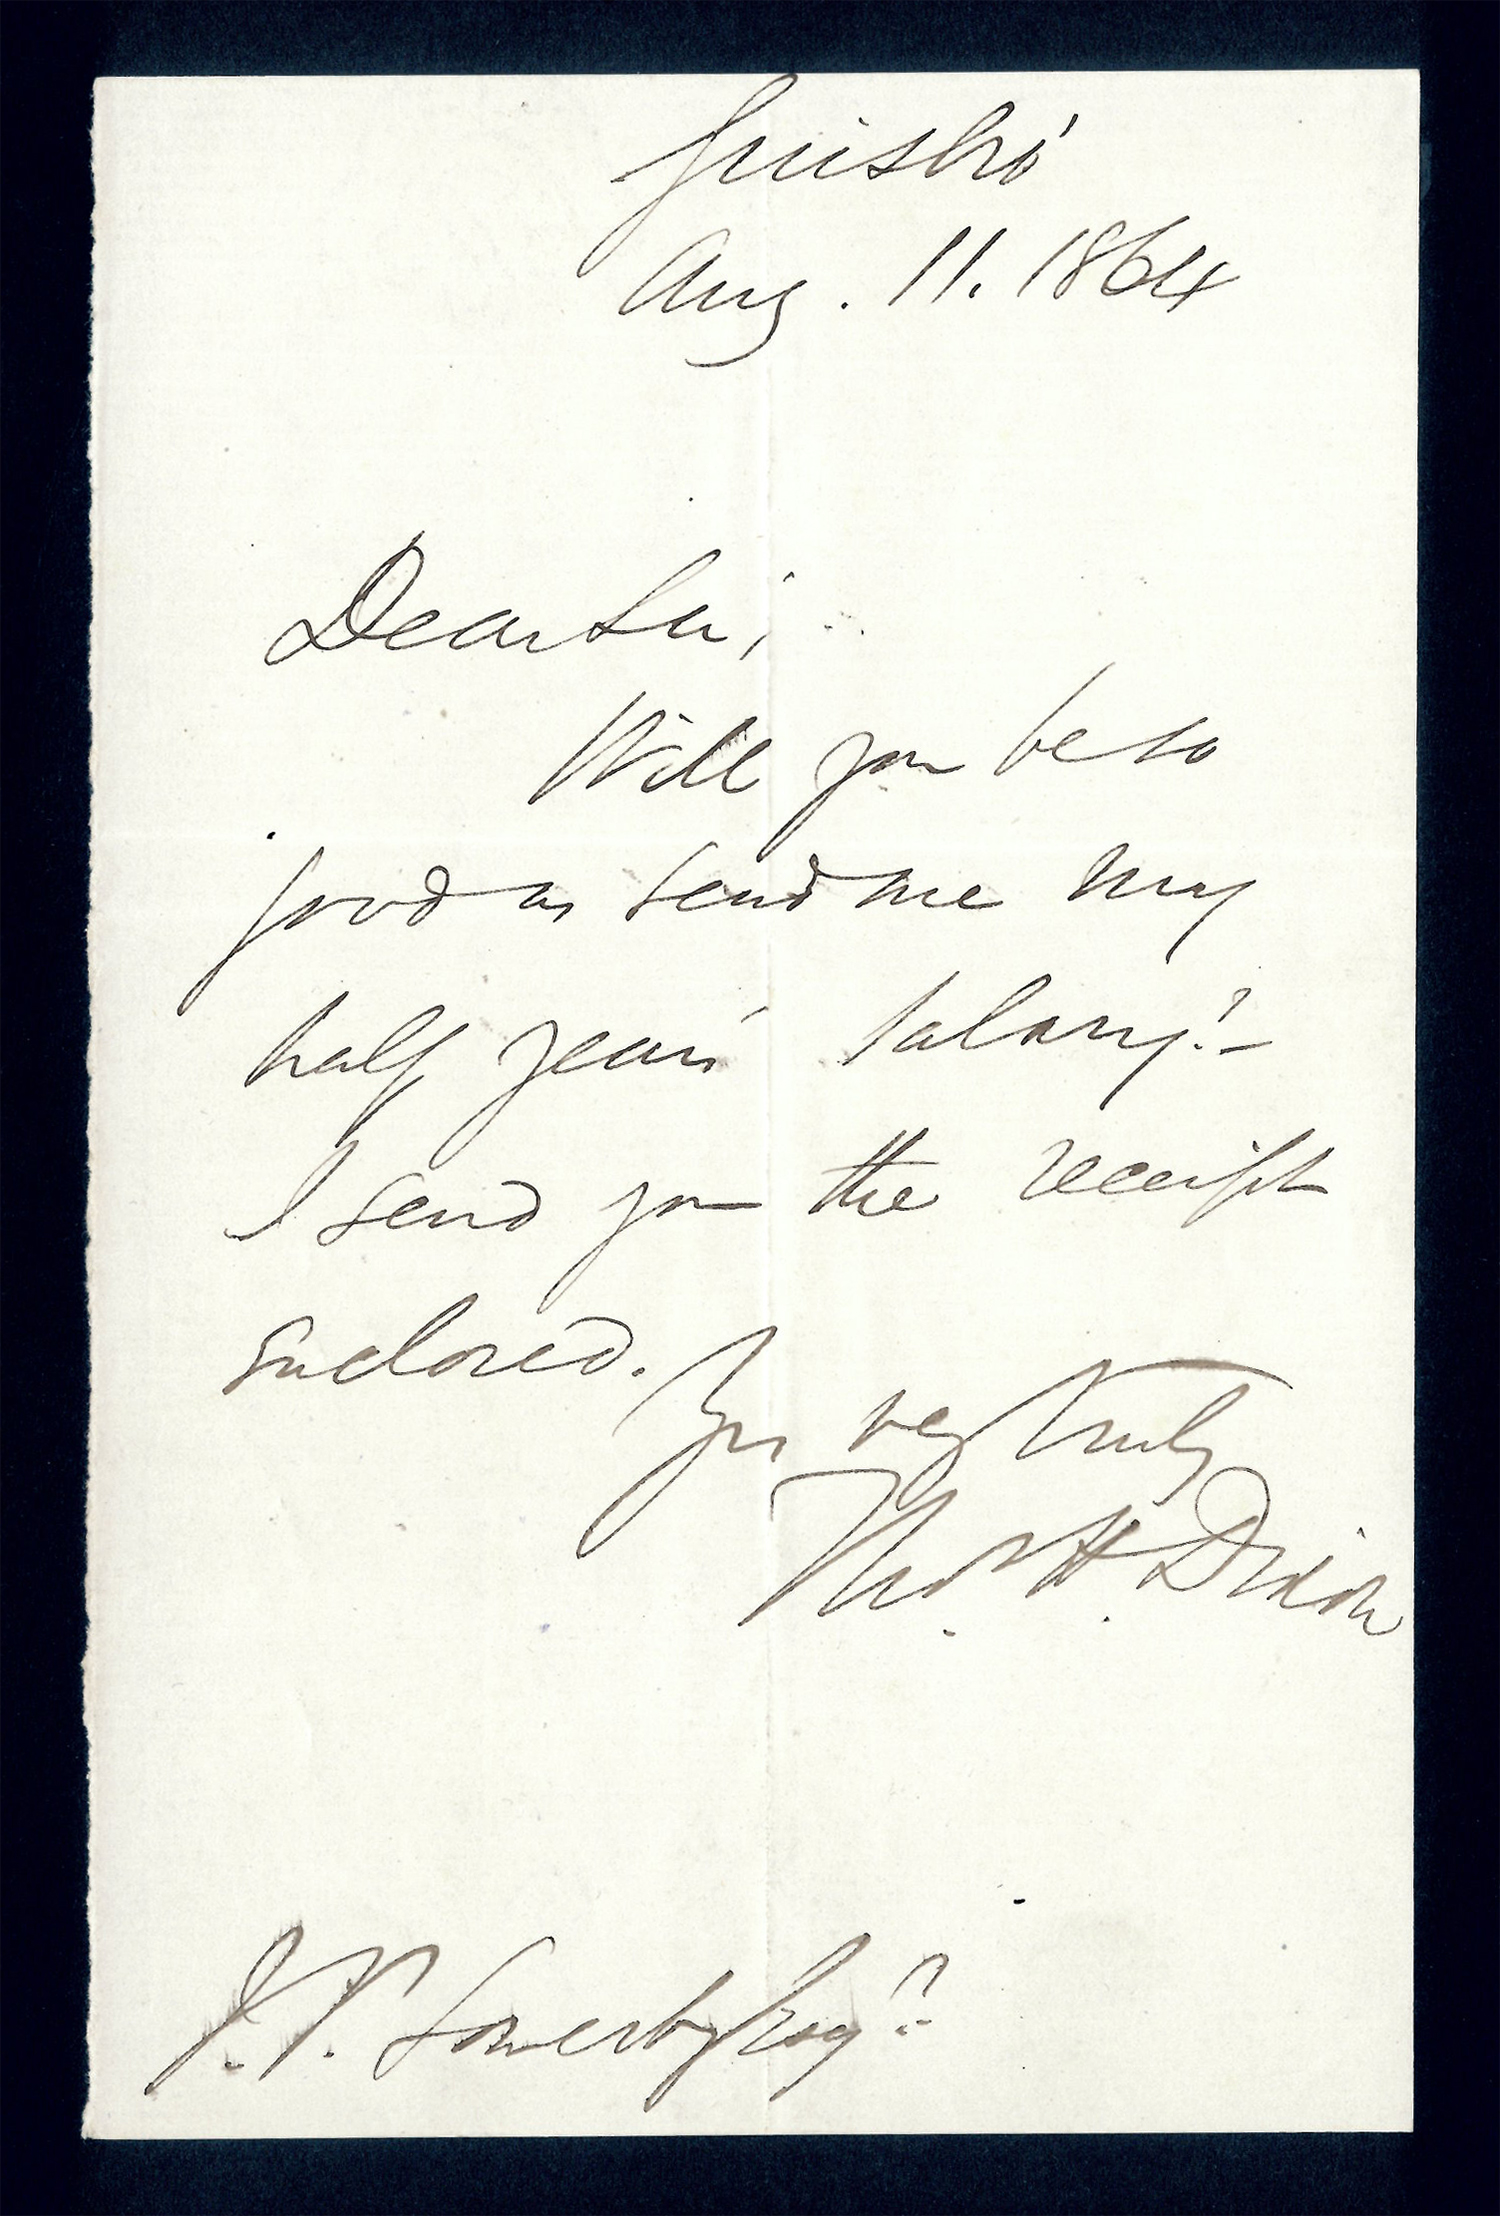 Guisbro'
Aug. 11. 1864
Dear Sir,
Will you be so
good as send me my
half years' salary? -
I send you the receipt
enclosed.
Yrs very truly
Thos. H. Dixon
J. P. Sowerby Esqr.